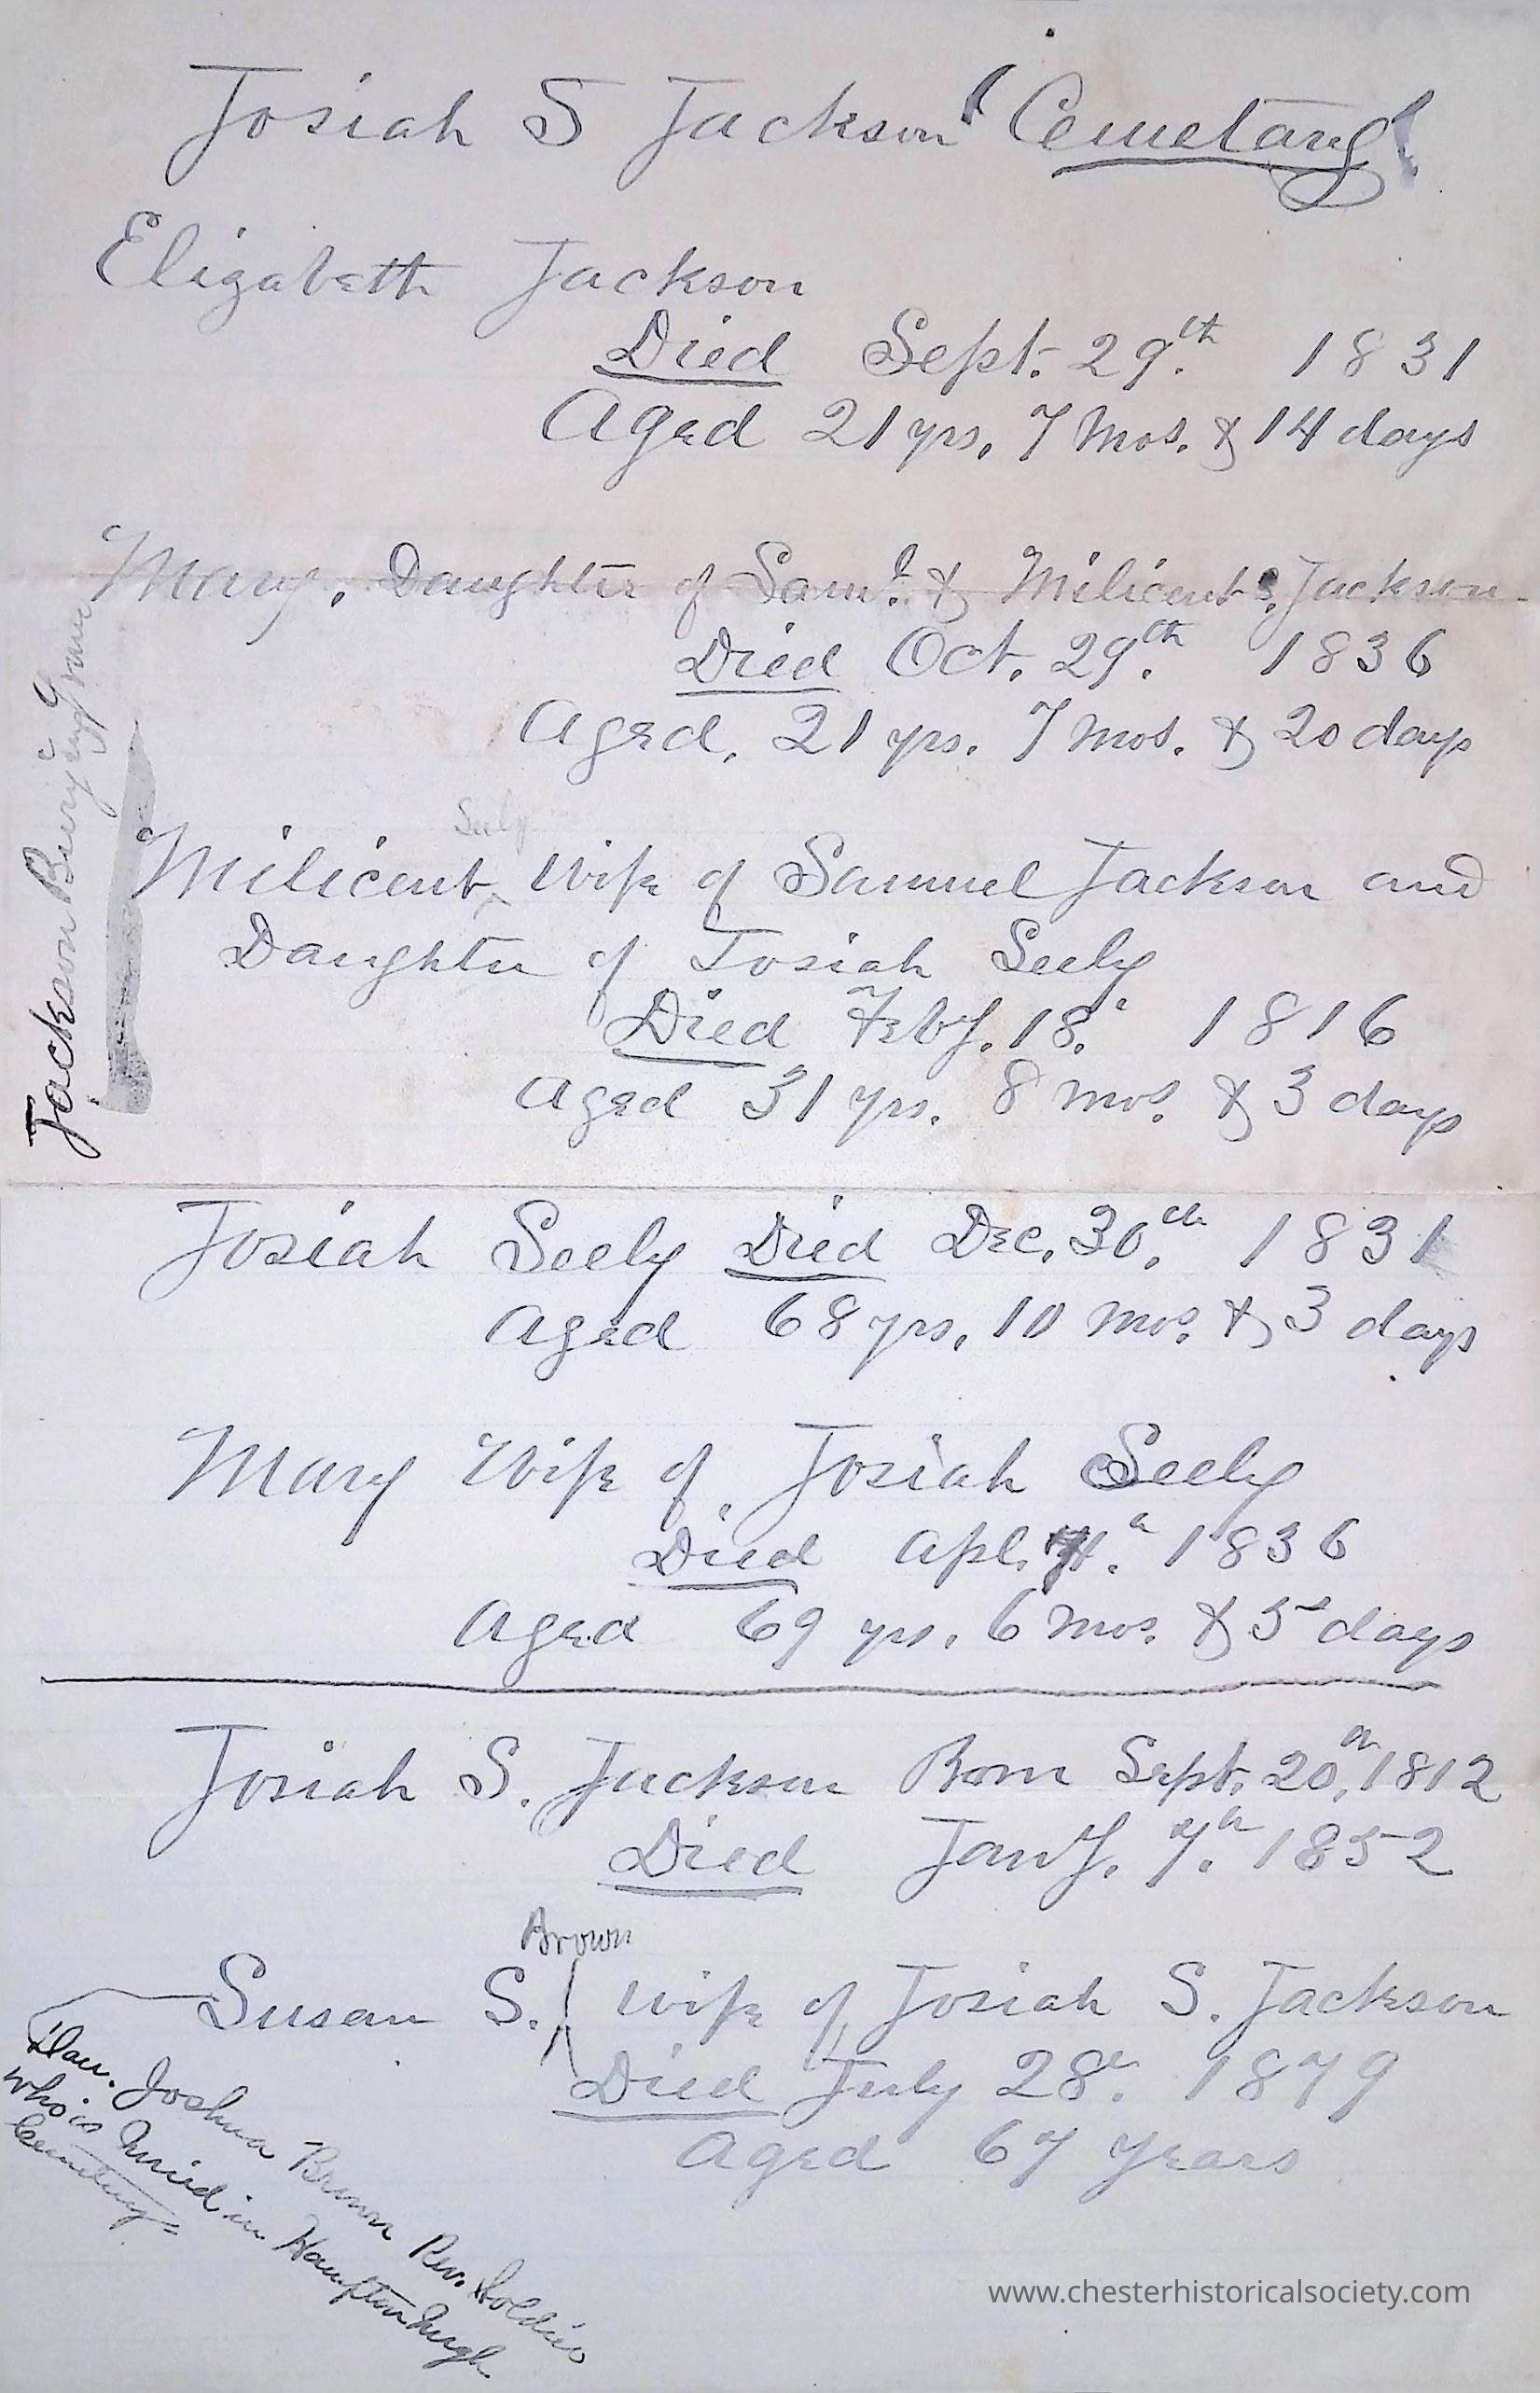 Josiah S Jackson Cemetary
Elizabeth Jackson
Died Sept. 29th. 1831
Aged 21 yrs. 7 Mos. & 14 days
Mary, Daughter of Saml. & Milicent S. Jackson
Died Oct. 29th. 1836
Aged, 21 yrs. 7 mos. & 20 days
Jackson Burying Ground
Seely
Milicent, Wife of Samuel Jackson and
Daughter of Josiah Seely
Died Feby. 18. 1816
Aged 31 yrs. 8 mos. & 3 days
Josiah Seely Died Dec. 30th. 1831
Aged 68 yrs. 10 mos. & 3 days
Mary Wife of Josiah Seely
Died Apl. 1836
Aged 69 yrs. 6 mos. & 5 days
Josiah S. Jackson Born Sept. 20th. 1812
Died Jany. 7th. 1852
Brown
Susan S. wife of Josiah S. Jackson
Died July 28th. 1879
Aged 67 Years
Dau. Joshua Brown Rev. Soldier
who is buried in Hamptonburgh
Cemetery
www.chesterhistoricalsociety.com